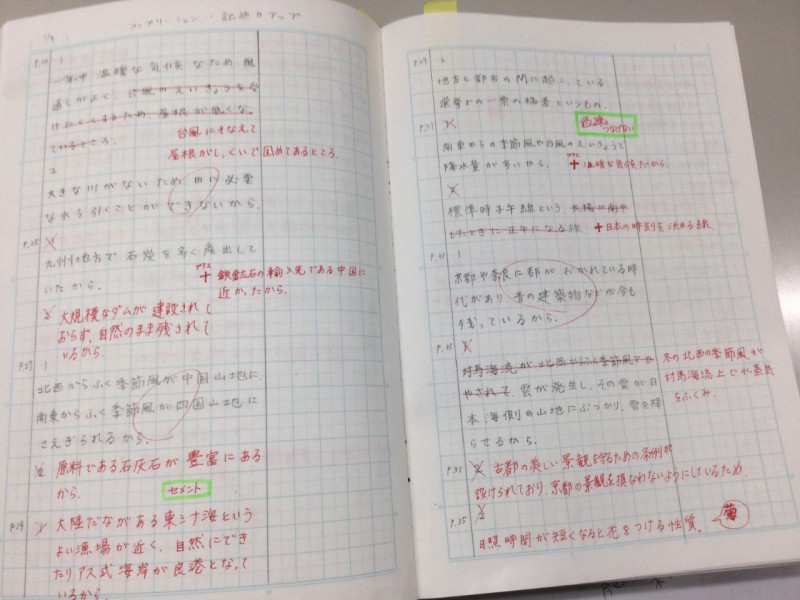 コンプリーション・記述力アップ
P.23
1
一年中温暖な気候なため風
通しがよく、台風のえいきょうを受
けにくくするため、屋根が低くな
っているところ。
台風にそなえて
屋根がしっくいで固めてあるところ。
2
大きな川がないため、田に必要
な水を引くことができないから。
P.25
1
九州地方で石炭を多く産出して
いたから。
プラス
+ 鉄鉱石の輸入先である中国に
近かったから。
2 大規模なダムが建設されて
おらず、自然のまま残されて
いるから。
P.27
1
北西からふく季節風が中国山地に、
南東からふく季節風が四国山地に
さえぎられるから。
2 原料である石灰石が豊富にある
から。
セメント
P.29
1 大陸だながある東シナ海という
よい漁場が近く、自然にでき
たリアス式海岸が良港となって
いるから。
P.29
2
地方と都市の間に起こっている
選挙での一票の格差というもの。
過疎と
つなげない
P.31
1
南東からの季節風や台風のえいきょうで
降水量が多いから。
プラス
+ 温暖な気候だから。
2
標準時子午線という、太陽が南中
したときに正午になる線
+ 日本の時刻を決める線
1
京都や奈良に都がおかれている時
代があり昔の建築物などが今も
残っているから。
P.35
対馬海流が北西からふく季節風でひ
やされて、雲が発生し、その雲が日
本海側の山地にぶつかり、雪を降
らせるから。
冬の北西の季節風が
対馬海流上で水蒸気
をふくみ、
P.33
2 古都の美しい景観を守るための条例が
設けられており、京都の景観を損なわないようにしているため。
P.35
2
日照時間が短くなると花をつける性質。
菊